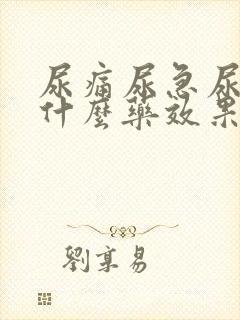 尿痛尿急尿
什麼藥效果
劉享易